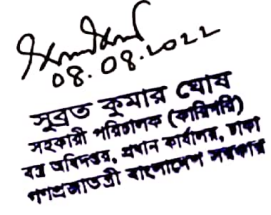 08.08.2022
সুব্রত কুমার ঘোষ
সহকারী পরিচালক (কারিগরি)
বস্ত্র অধিদপ্তর, প্রধান কার্যালয়, ঢাকা
গণপ্রজাতন্ত্রী বাংলাদেশ সরকার